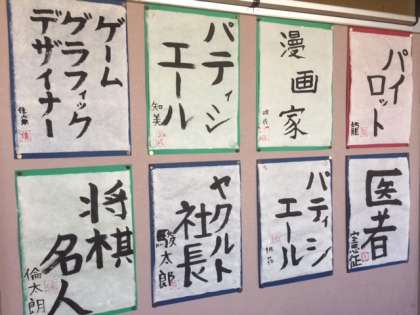 パイ
ロット
龍
漫画家
パティシ
エール
知美
ゲーム
グラフィック
デザイナー
医者
憲征
パティシ
エール
ヤクルト
社長
駿太郎
将棋
名人
倫太朗